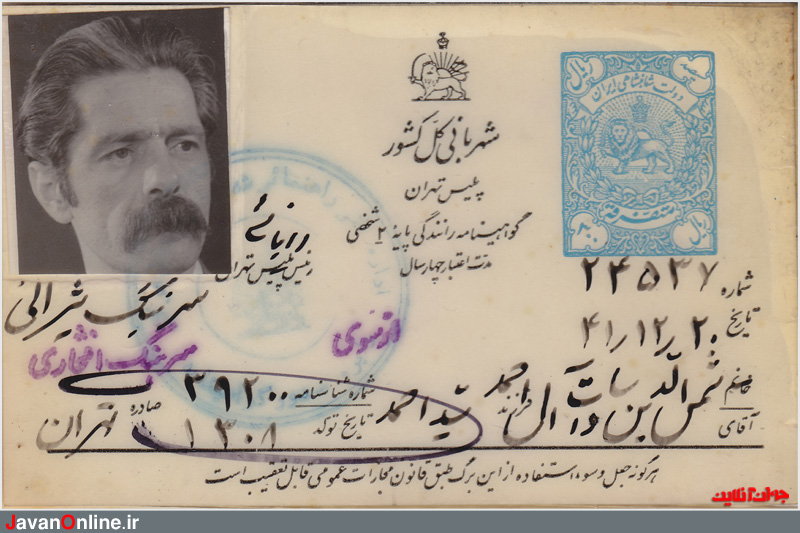 دولت شاهنشاهی ایران
ریال
ریال
متفرقه
شهربانی کل کشور
پلیس تهران
گواهینامه رانندگی پایه ۲ شخصی
مدت اعتبار چهار سال
رئیس پلیس تهران
سرهنگ
سرهنگ افتخاری
شماره ۲۴۵۳۷
تاریخ ۴۱/۱۲/۲۰
خانم
آقای
شمس الدین
فرزند
سید احمد
شماره شناسنامه ۳۹۲۰۰
تاریخ تولد ۱۳۰۸
صادره تهران
هرگونه جعل و سوء استفاده از این برگ طبق قانون مجازات عمومی قابل تعقیب است
جوان آنلاین
JavanOnline.ir
JavanOnline.ir